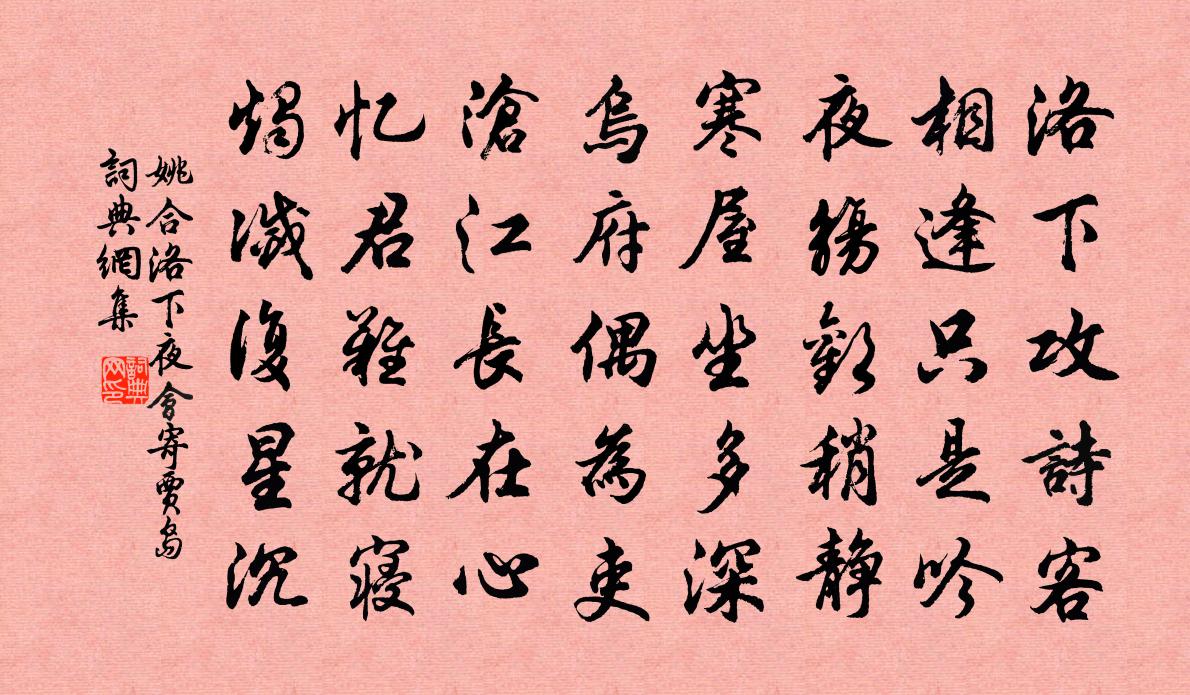 洛下攻詩客
相逢只是吟
夜觴歡稍静
寒屋坐多深
烏府偶為吏
滄江長在心
忆君難就寢
燭滅復星沉
姚合洛下夜會寄賈島
詞典網集
詞典网印